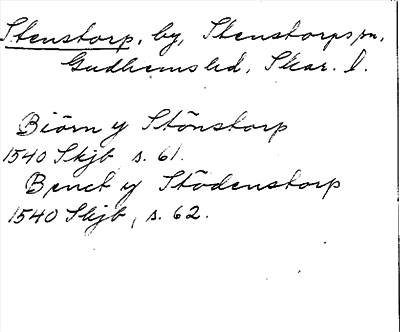 Stenstorp, by, Stenstorps sn,
Gudhems hd, Skar. l.
Biörn y Stönstorp
1540 Skjb s. 61.
Benct y Stödenstorp
1540 Skjb, s. 62.